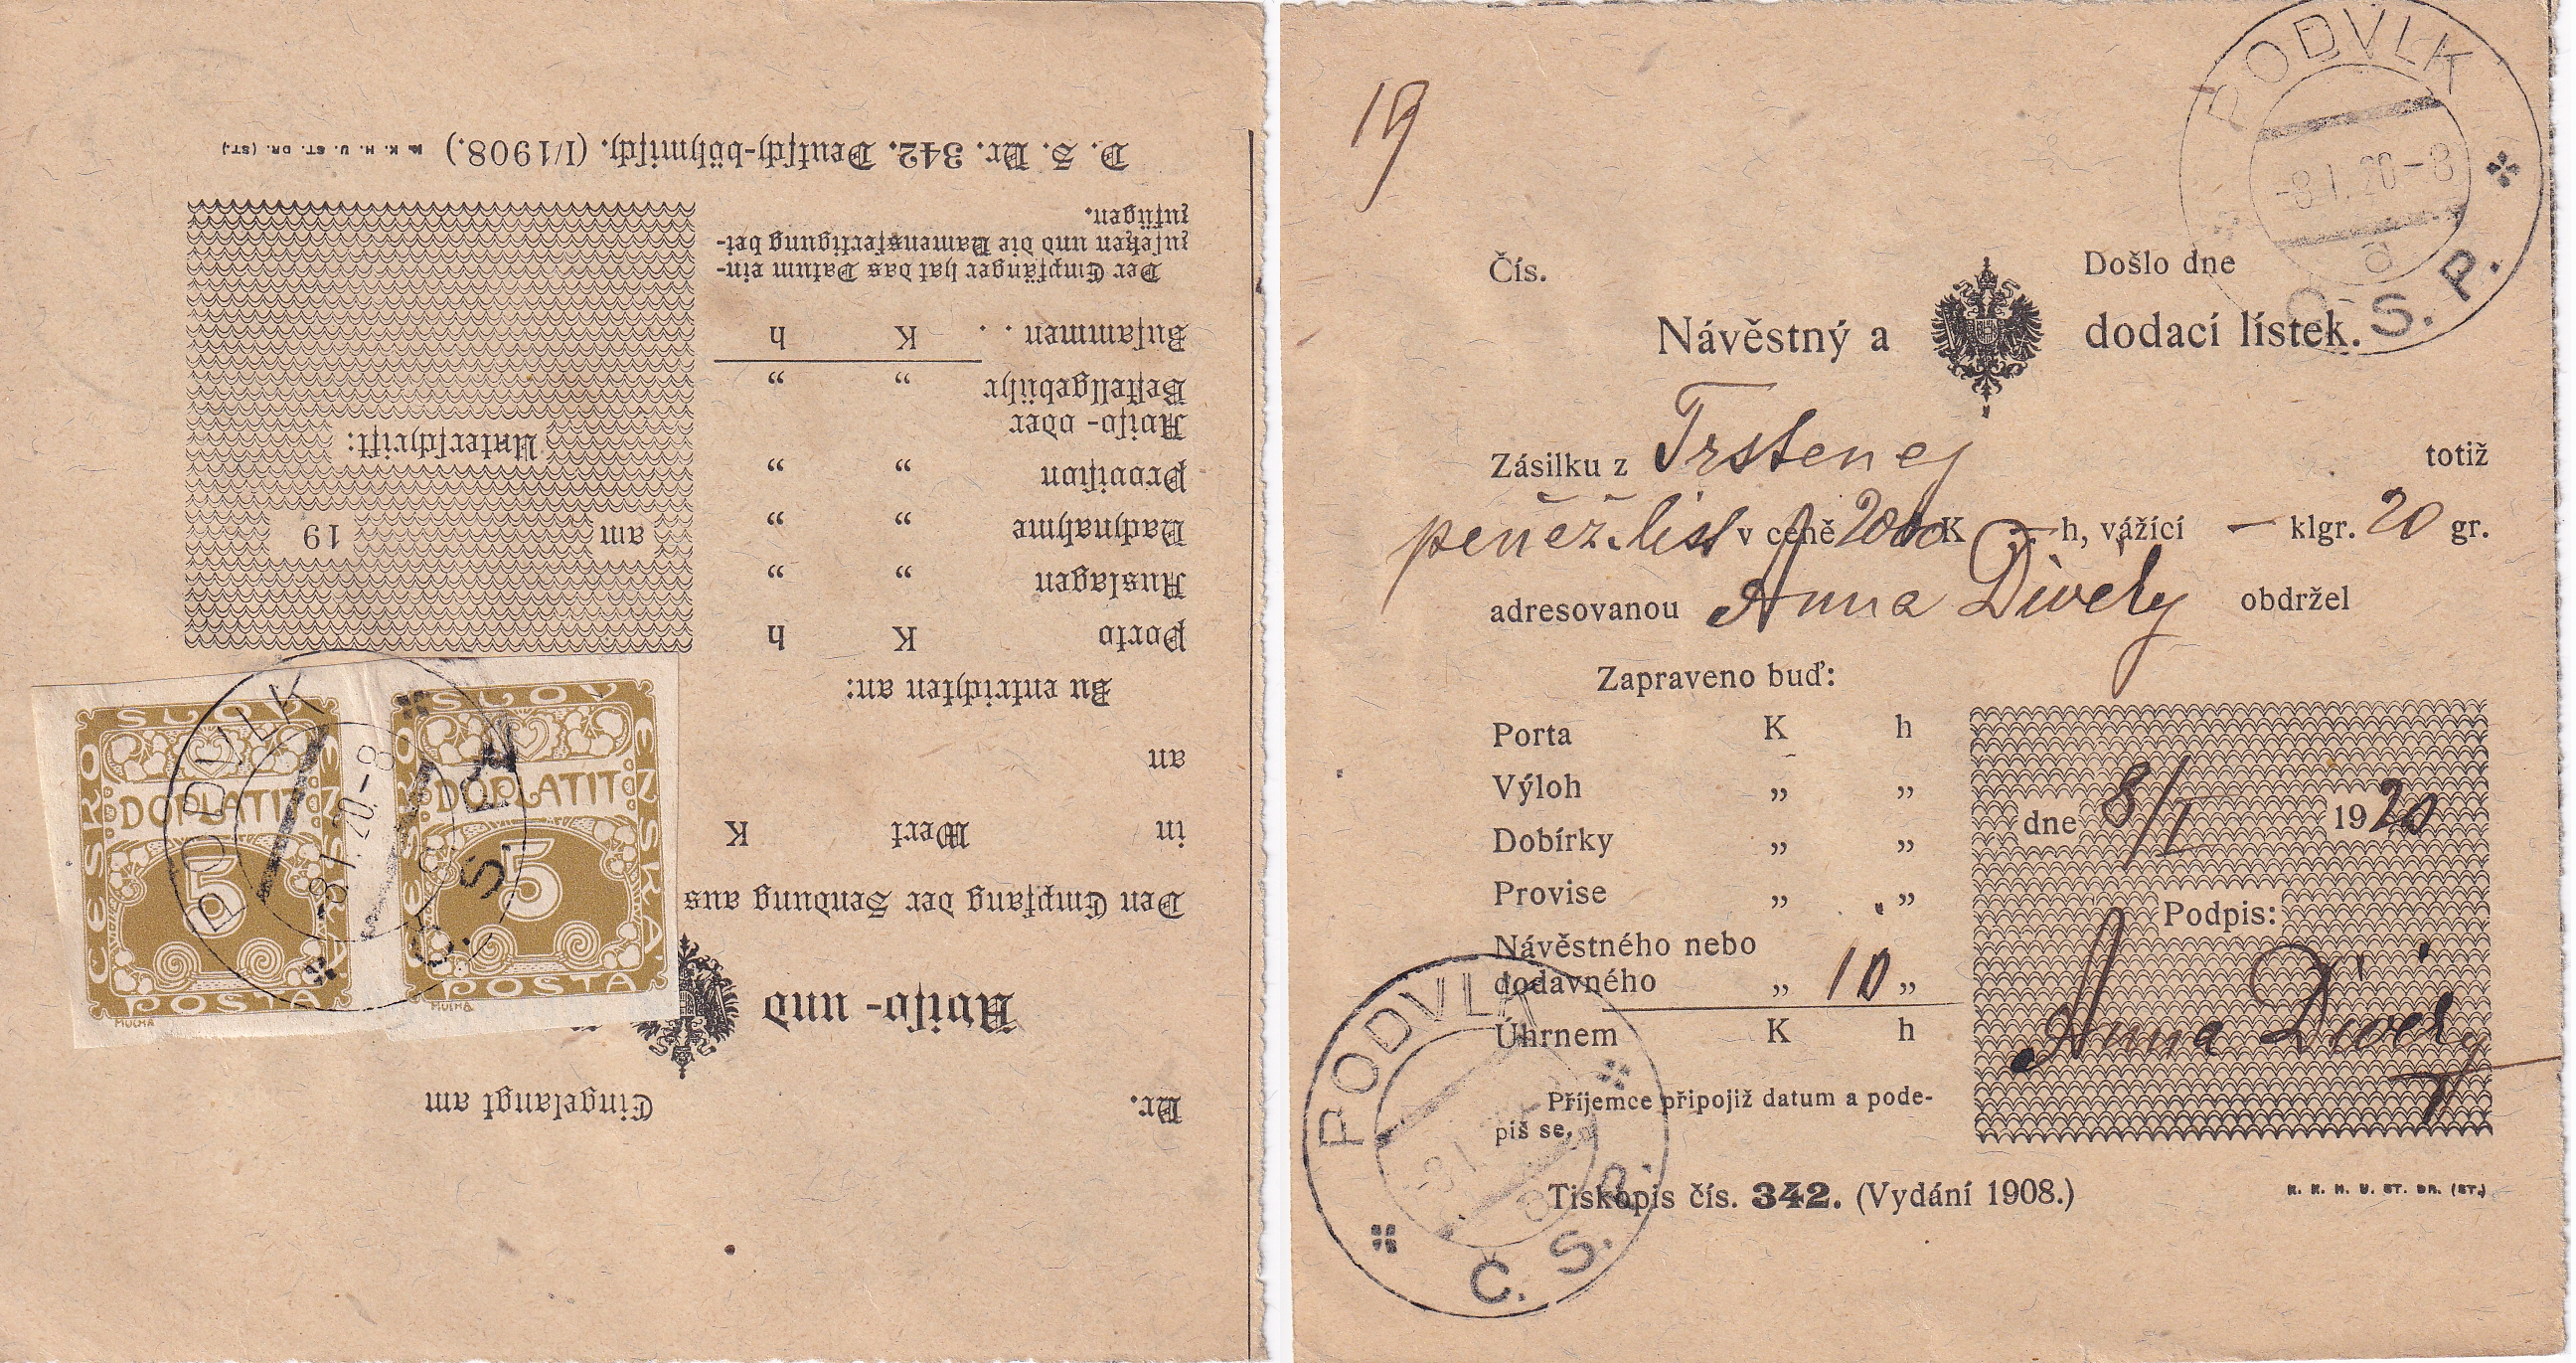 D. S. Nr. 342. Deutsch-böhmisch. (I/1908.) K. K. H. U. ST. DR. (ST.)
Der Empfänger hat das Datum ein-
zusetzen und die Namensfertigung bei-
zufügen.
Zusammen . . K h
Aviso- oder
Bestellgebühr „ „
Provision „ „
Nachnahme „ „
Auslagen „ „
Porto K h
Zu entrichten an:
Unterschrift:
am 19
an
in Wert K
Den Empfang der Sendung aus
Aviso- und
Nr. Eingelangt am
ČESKO SLOVENSKÁ
DOPLATIT
5
POŠTA
MUCHA
ČESKO SLOVENSKÁ
DOPLATIT
5
POŠTA
MUCHA
PODVLK
-8.I.20-8
Č. S. P.
19
PODVLK
-8.I.20-8
a
Č. S. P.
Čís. Došlo dne
Návěstný a dodací lístek.
Zásilku z Trstenej totiž
peněž. list v ceně 2000 K — h, vážící — klgr. 20 gr.
adresovanou Anna Divéky obdržel
Zapraveno buď:
Porta K h
Výloh „ „
Dobírky „ „
Provise „ „
Návěstného nebo
dodavného „ 10 „
Úhrnem K h
dne 8/I 1920
Podpis:
Anna Divéky
Příjemce připojiž datum a pode-
piš se.
Tiskopis čís. 342. (Vydání 1908.) K. K. H. U. ST. DR. (ST.)
PODVLK
-8.I.
a
Č. S. P.